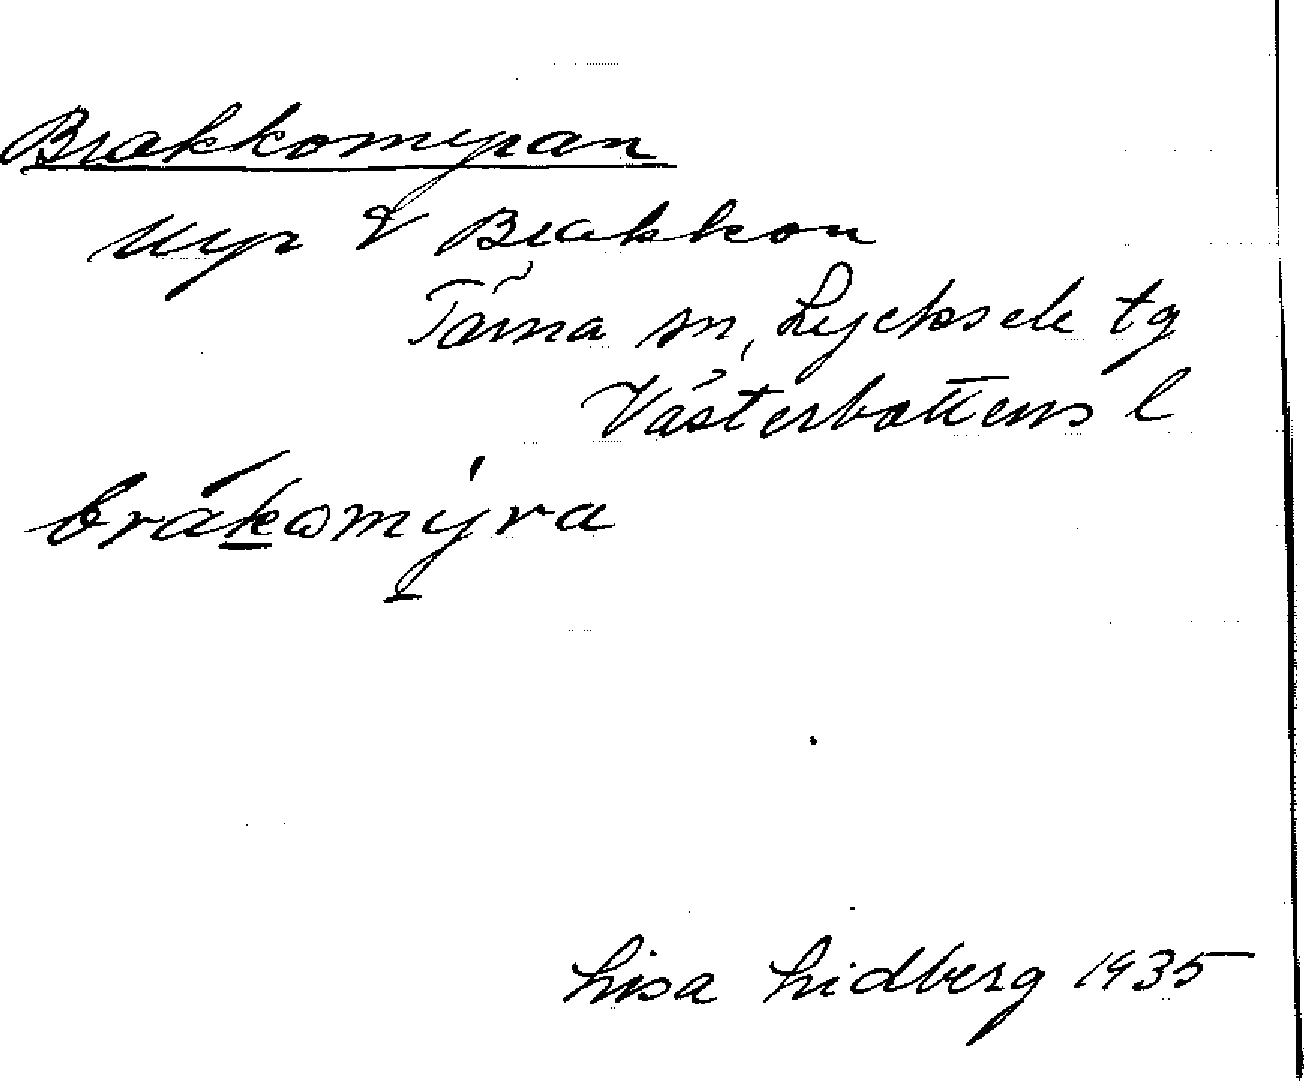 Brakkomyran
myr V Brakkon
Tärna sn, Lycksele tg
Västerbottens l
brákomýra
Lisa Lidberg 1935